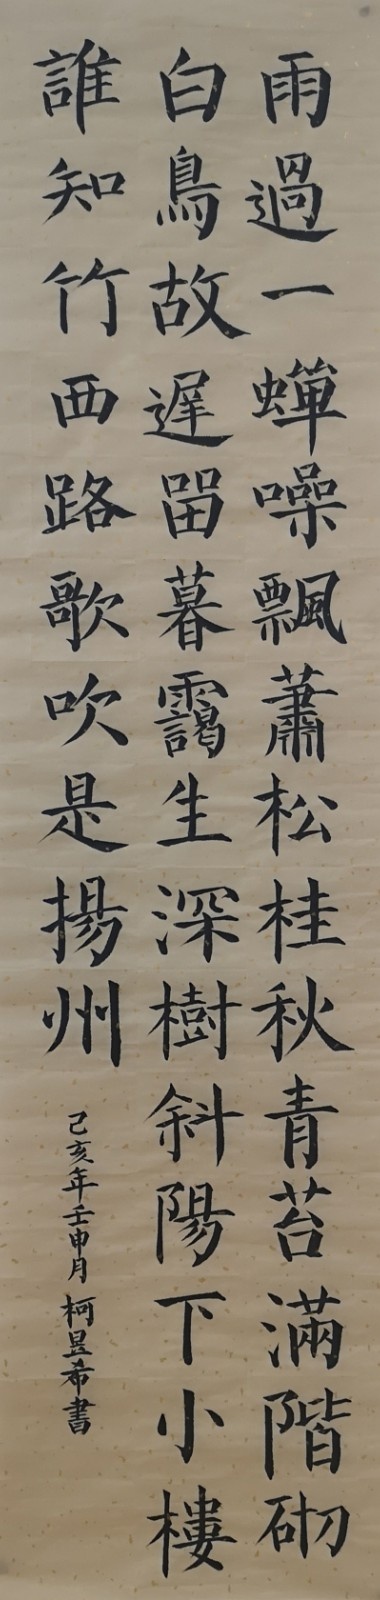 雨過一蟬噪飄蕭松桂秋青苔滿階砌
白鳥故遲留暮靄生深樹斜陽下小樓
誰知竹西路歌吹是揚州
己亥年壬申月柯昱希書